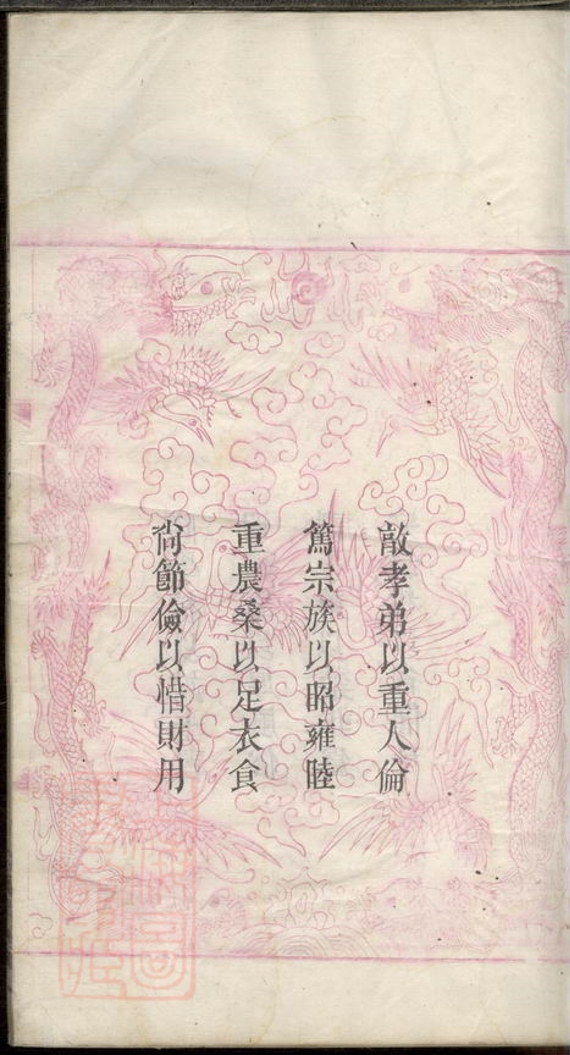 敦孝弟以重人倫
篤宗族以昭雍睦
重農桑以足衣食
尙節儉以惜財用